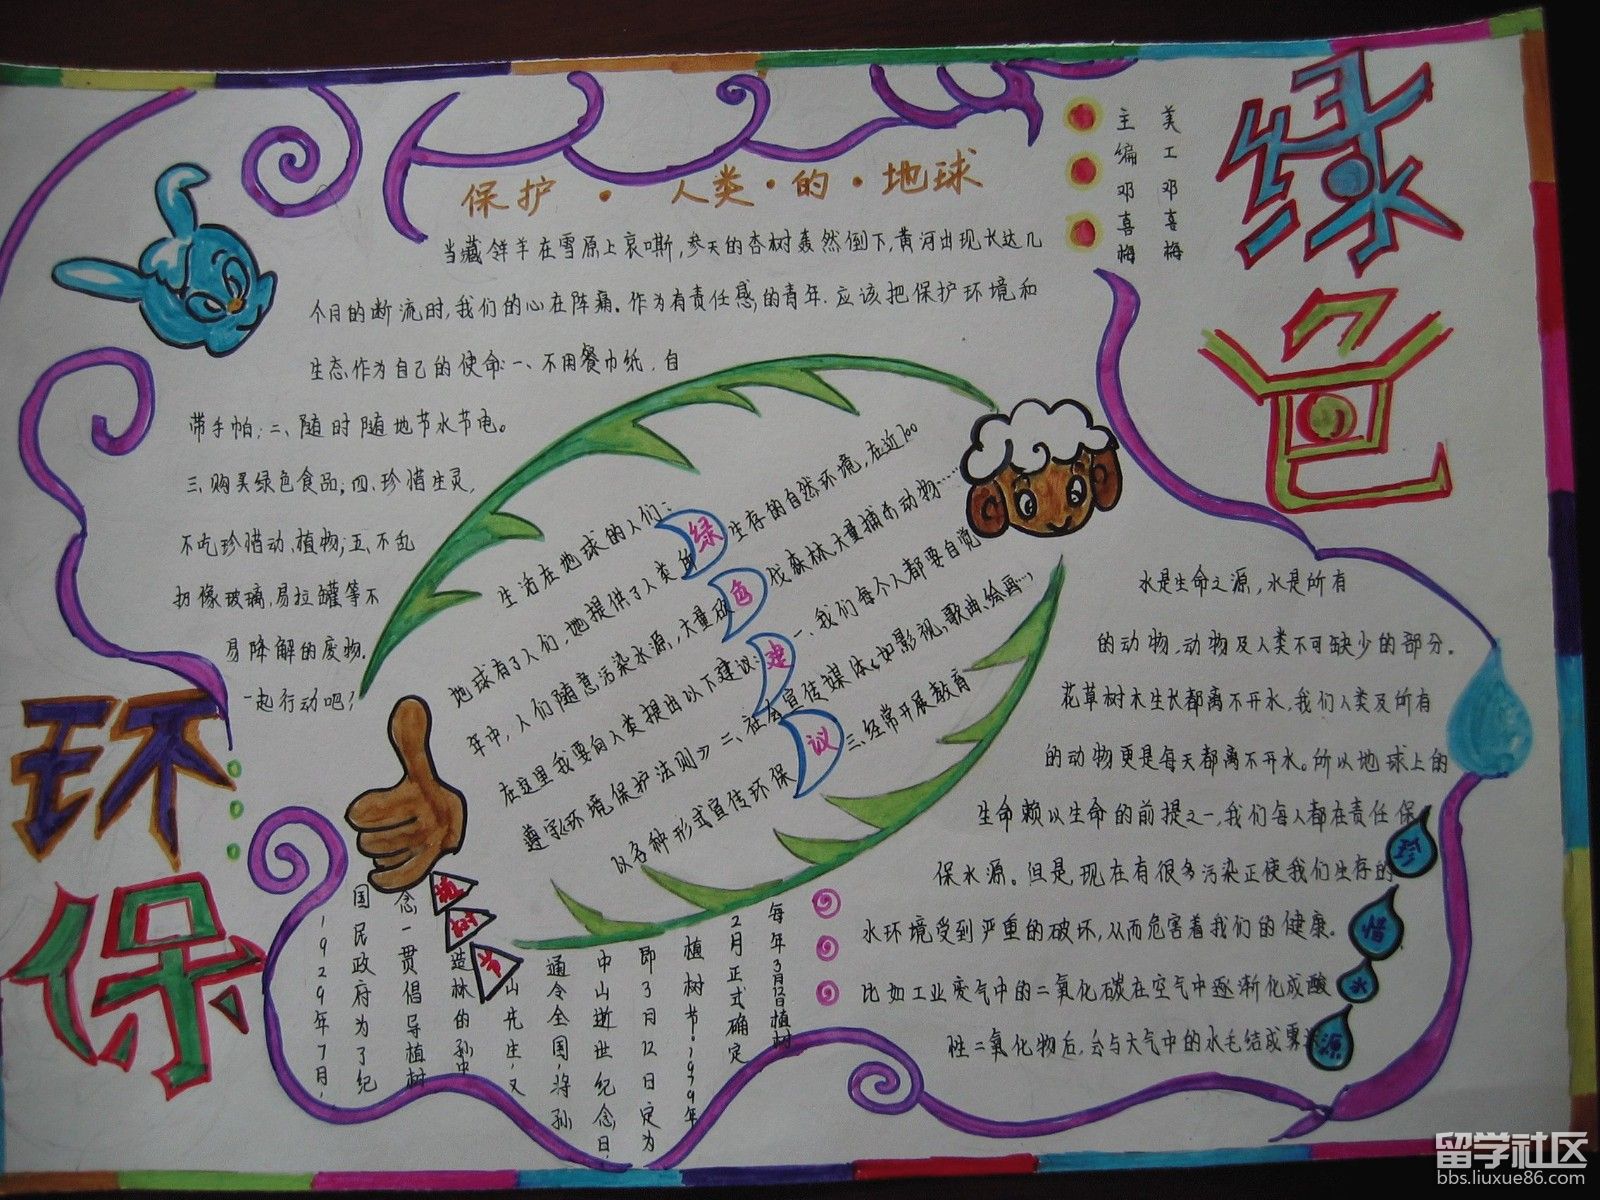 绿色
环保
主编 邓喜梅
美工 邓喜梅
保护·人类·的·地球
当藏羚羊在雪原上哀嘶,参天的杏树轰然倒下,黄河出现长达几
个月的断流时,我们的心在阵痛。作为有责任感的青年,应该把保护环境和
生态作为自己的使命:一、不用餐巾纸,自
带手帕;二、随时随地节水节电。
三、购买绿色食品;四、珍惜生灵,
不吃珍惜动、植物;五、不乱
扔橡玻璃,易拉罐等不
易降解的废物.
一起行动吧!
绿色建议
生活在地球的人们:
地球有了人们,她提供了人类所生存的自然环境,在近100
年中,人们随意污染水源,大量砍伐森林、大量捕杀动物……
在这里我要向人类提出以下建议:一、我们每个人都要自觉
遵守《环境保护法则》二、社会宣传媒体《如影视,歌曲、绘画…,
以各种形式宣传环保 三、经常开展教育
水是生命之源,水是所有
的动物,动物及人类不可缺少的部分。
花草树木生长都离不开水,我们人类及所有
的动物更是每天都离不开水。所以地球上的
生命赖以生命的前提之一,我们每人都在责任保
保水源。但是,现在有很多污染正使我们生存的
水环境受到严重的破坏,从而危害着我们的健康。
比如工业废气中的二氧化碳在空气中逐渐化成酸
性二氧化物后,会与大气中的水毛结成雾
珍惜水源
植树节
每年3月12日植树
2月正式确定
植树节!1979年
即3月12日定为
中山逝世纪念日,
通令全国,将孙
山先生,又
造林的孙中
念一贯倡导植树
国民政府为了纪
1929年7月,
留学社区
bbs.liuxue86.com